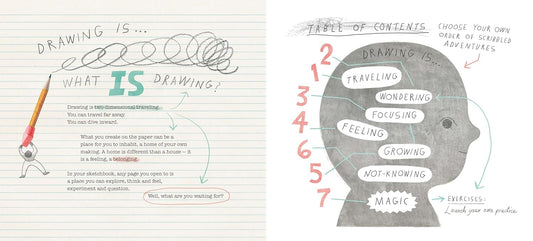 DRAWING IS...
WHAT IS DRAWING?
Drawing is two-dimensional traveling.
You can travel far away.
You can dive inward.
What you create on the paper can be a
place for you to inhabit, a home of your own
making. A home is different than a house – it
is a feeling, a belonging.
In your sketchbook, any page you open to is
a place you can explore, think and feel,
experiment and question.
Well, what are you waiting for?
TABLE OF CONTENTS
CHOOSE YOUR OWN
ORDER OF SCRIBBLED
ADVENTURES
DRAWING IS...
2
1 TRAVELING
WONDERING
3 FOCUSING
4 FEELING
6 GROWING
5 NOT-KNOWING
7 MAGIC
EXERCISES:
Launch your own practice